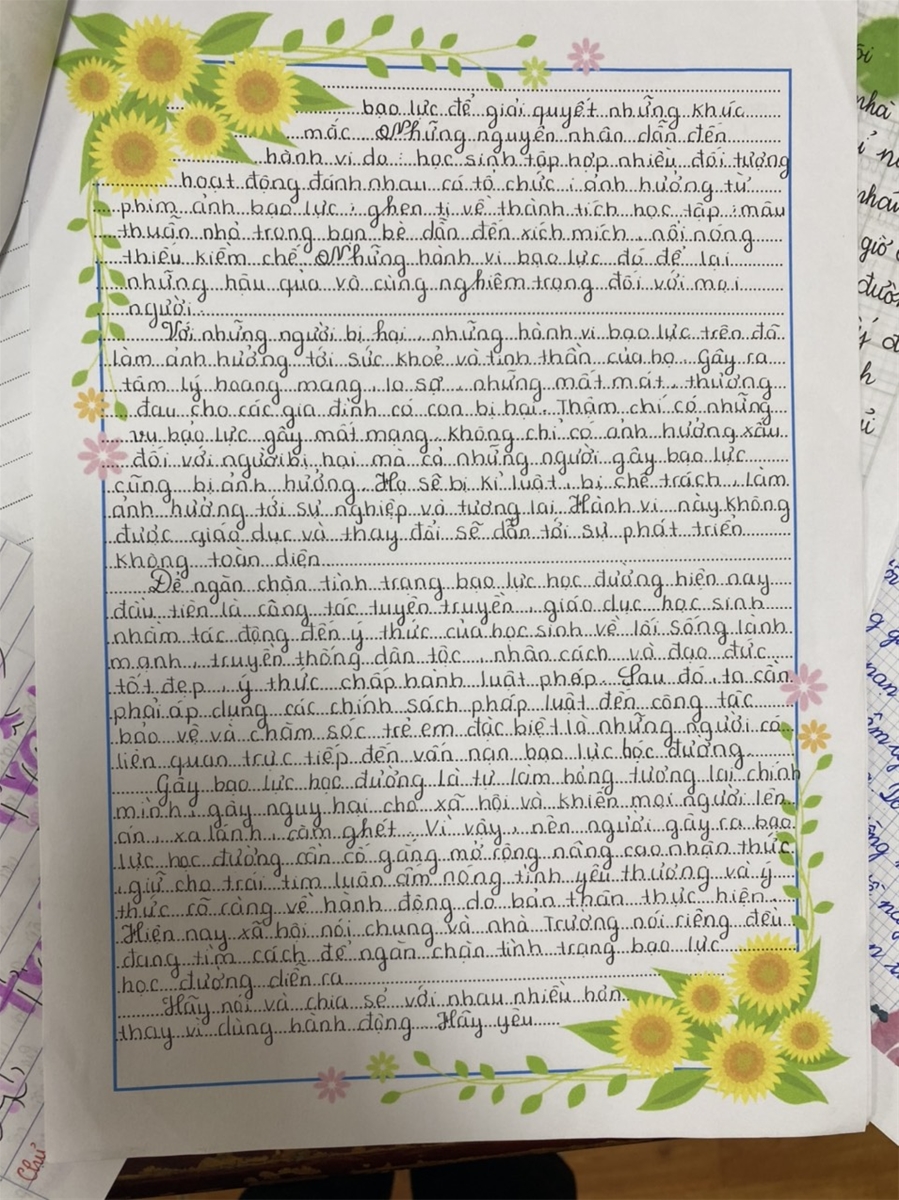 bạo lực để giải quyết những khúc
mắc. Những nguyên nhân dẫn đến
hành vi do : học sinh tập hợp nhiều đối tượng
hoạt động đánh nhau có tổ chức ; ảnh hưởng từ
phim ảnh bạo lực ; ghen tị về thành tích học tập ; mâu
thuẫn nhỏ trong bạn bè dẫn đến xích mích, nôi nóng
thiếu kiềm chế. Những hành vi bạo lực đó để lại
những hậu quả vô cùng nghiêm trọng đối với mọi
người.
Với những người bị hại, những hành vi bạo lực trên đã
làm ảnh hưởng tới sức khoẻ và tinh thần của họ. Gây ra
tâm lý hoang mang, lo sợ, những mất mát, thương
đau cho các gia đình có con bị hại. Thậm chí có những
vụ bạo lực gây mất mạng. Không chỉ có ảnh hưởng xấu
đối với người bị hại mà cả những người gây bạo lực
cũng bị ảnh hưởng. Họ sẽ bị kỉ luật, bị chê trách, làm
ảnh hưởng tới sự nghiệp và tương lai. Hành vi này không
được giáo dục và thay đổi sẽ dẫn tới sự phát triển
không toàn diện.
Để ngăn chặn tình trạng bạo lực học đường hiện nay
đầu tiên là công tác tuyên truyền, giáo dục học sinh
nhằm tác động đến ý thức của học sinh về lối sống lành
mạnh, truyền thống dân tộc, nhân cách và đạo đức
tốt đẹp, ý thức chấp hành luật pháp. Sau đó, ta cần
phải áp dụng các chính sách pháp luật đến công tác
bảo vệ và chăm sóc trẻ em đặc biệt là những người có
liên quan trực tiếp đến vấn nạn bạo lực học đường.
Gây bạo lực học đường là tự làm hỏng tương lai chính
mình, gây nguy hại cho xã hội và khiến mọi người lên
án, xa lánh, căm ghét. Vì vậy, nên người gây ra bạo
lực học đường cần cố gắng mở rộng nâng cao nhận thức
, giữ cho trái tim luôn ấm nóng tình yêu thương và ý
thức rõ ràng về hành động do bản thân thực hiện.
Hiện nay xã hội nói chung và nhà Trường nói riêng đều
đang tìm cách để ngăn chặn tình trạng bạo lực
học đường diễn ra.
Hãy nói và chia sẻ với nhau nhiều hơn
thay vì dùng hành động. Hãy yêu